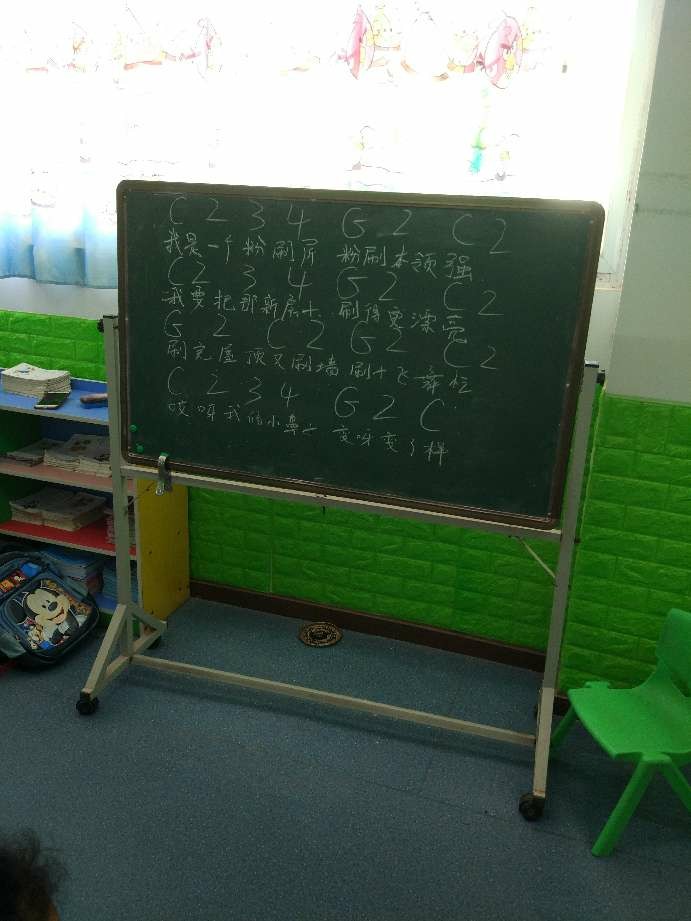 C 2 3 4 G 2 C 2
我是一个粉刷匠 粉刷本领强
C 2 3 4 G 2 C 2
我要把那新房十 刷得更漂亮
G 2 C 2 G 2 C 2
刷完屋顶又刷墙 刷十飞舞忙
C 2 3 4 G 2 C
哎呀我的小鼻十 变呀变了样